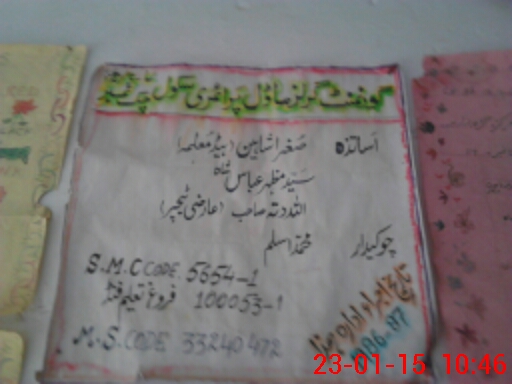 گورنمنٹ گرلز ماڈل پرائمری سکول
اساتذہ صغراشاہین (ہیڈ معلمہ)
سید مظہر عباس شاہ
اللہ دتہ صاحب (عارضی ٹیچر)
چوکیدار محمد اسلم
S.M.C CODE. 5654-1
فروغ تعلیم فنڈ 100053-1
M.S.CODE 33240472
تاریخ اجراء ادارہ ہذا
86-87
23-01-15 10:46